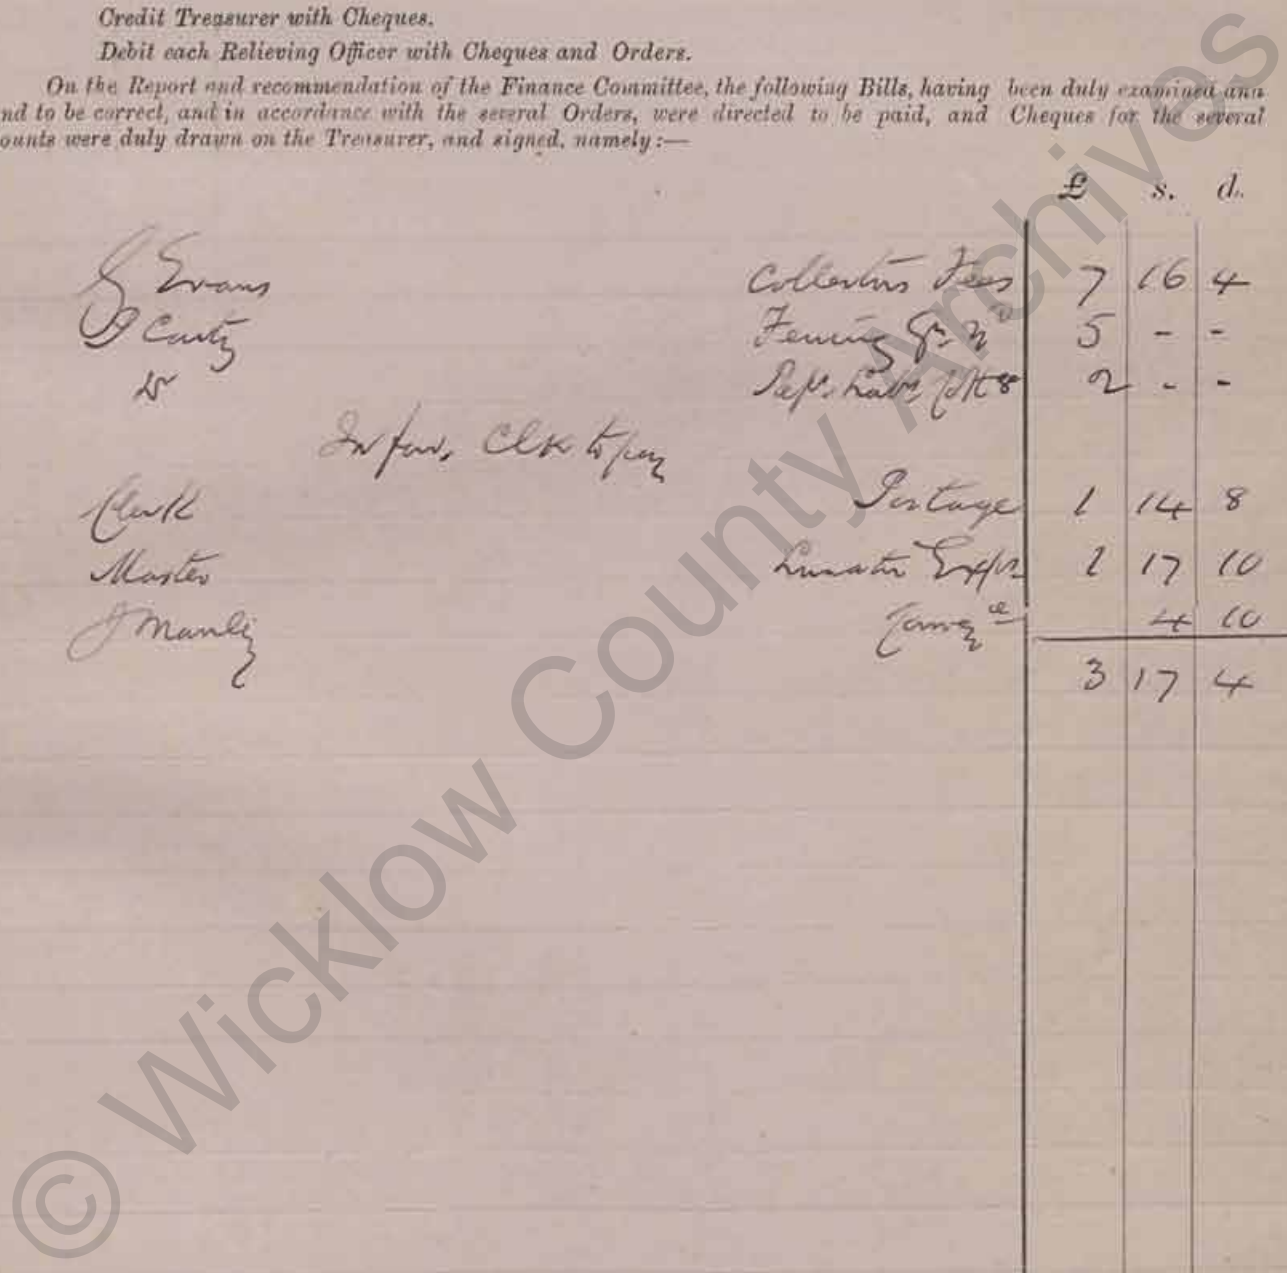 Credit Treasurer with Cheques.
Debit each Relieving Officer with Cheques and Orders.
On the Report and recommendation of the Finance Committee, the following Bills, having been duly examined and
nd to be correct, and in accordance with the several Orders, were directed to be paid, and Cheques for the several
ounts were duly drawn on the Treasurer, and signed, namely:—
£ s. d.
Evans Collectors Fees 7 16 4
Carty Fencing 5 - -
Do 2 - -
Clk to pay
Clerk Postage 1 14 8
Master Lunatic Exps 1 17 10
J Manly Convey ce 4 10
3 17 4
© Wicklow County Archives